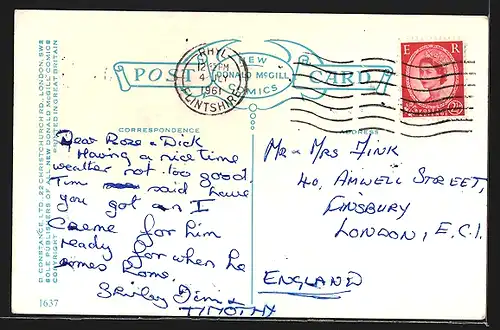 RHYL
12-PM
4- 
1961
FLINTSHIRE
POST CARD
NEW
DONALD McGILL
COMICS
E R
CORRESPONDENCE
ADDRESS
Dear Rose + Dick
Having a nice time
weather not too good.
Tim said have
you got an I
Creme for him
ready for when he
comes home.
Shirley Jim +
TIMOTHY
Mr + Mrs FINK
40, AMWELL STREET,
FINSBURY
LONDON, E.C.1.
ENGLAND
D. CONSTANCE, LTD., 22 CHRISTCHURCH RD., LONDON, SW2
SOLE PUBLISHERS OF ALL NEW DONALD McGILL COMICS
COPYRIGHT PRINTED IN GREAT BRITAIN
1637